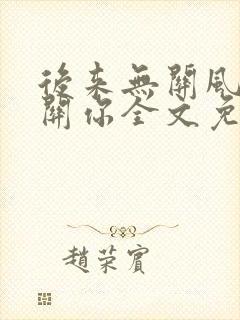 後来無關風
關你全文免
趙荣賓